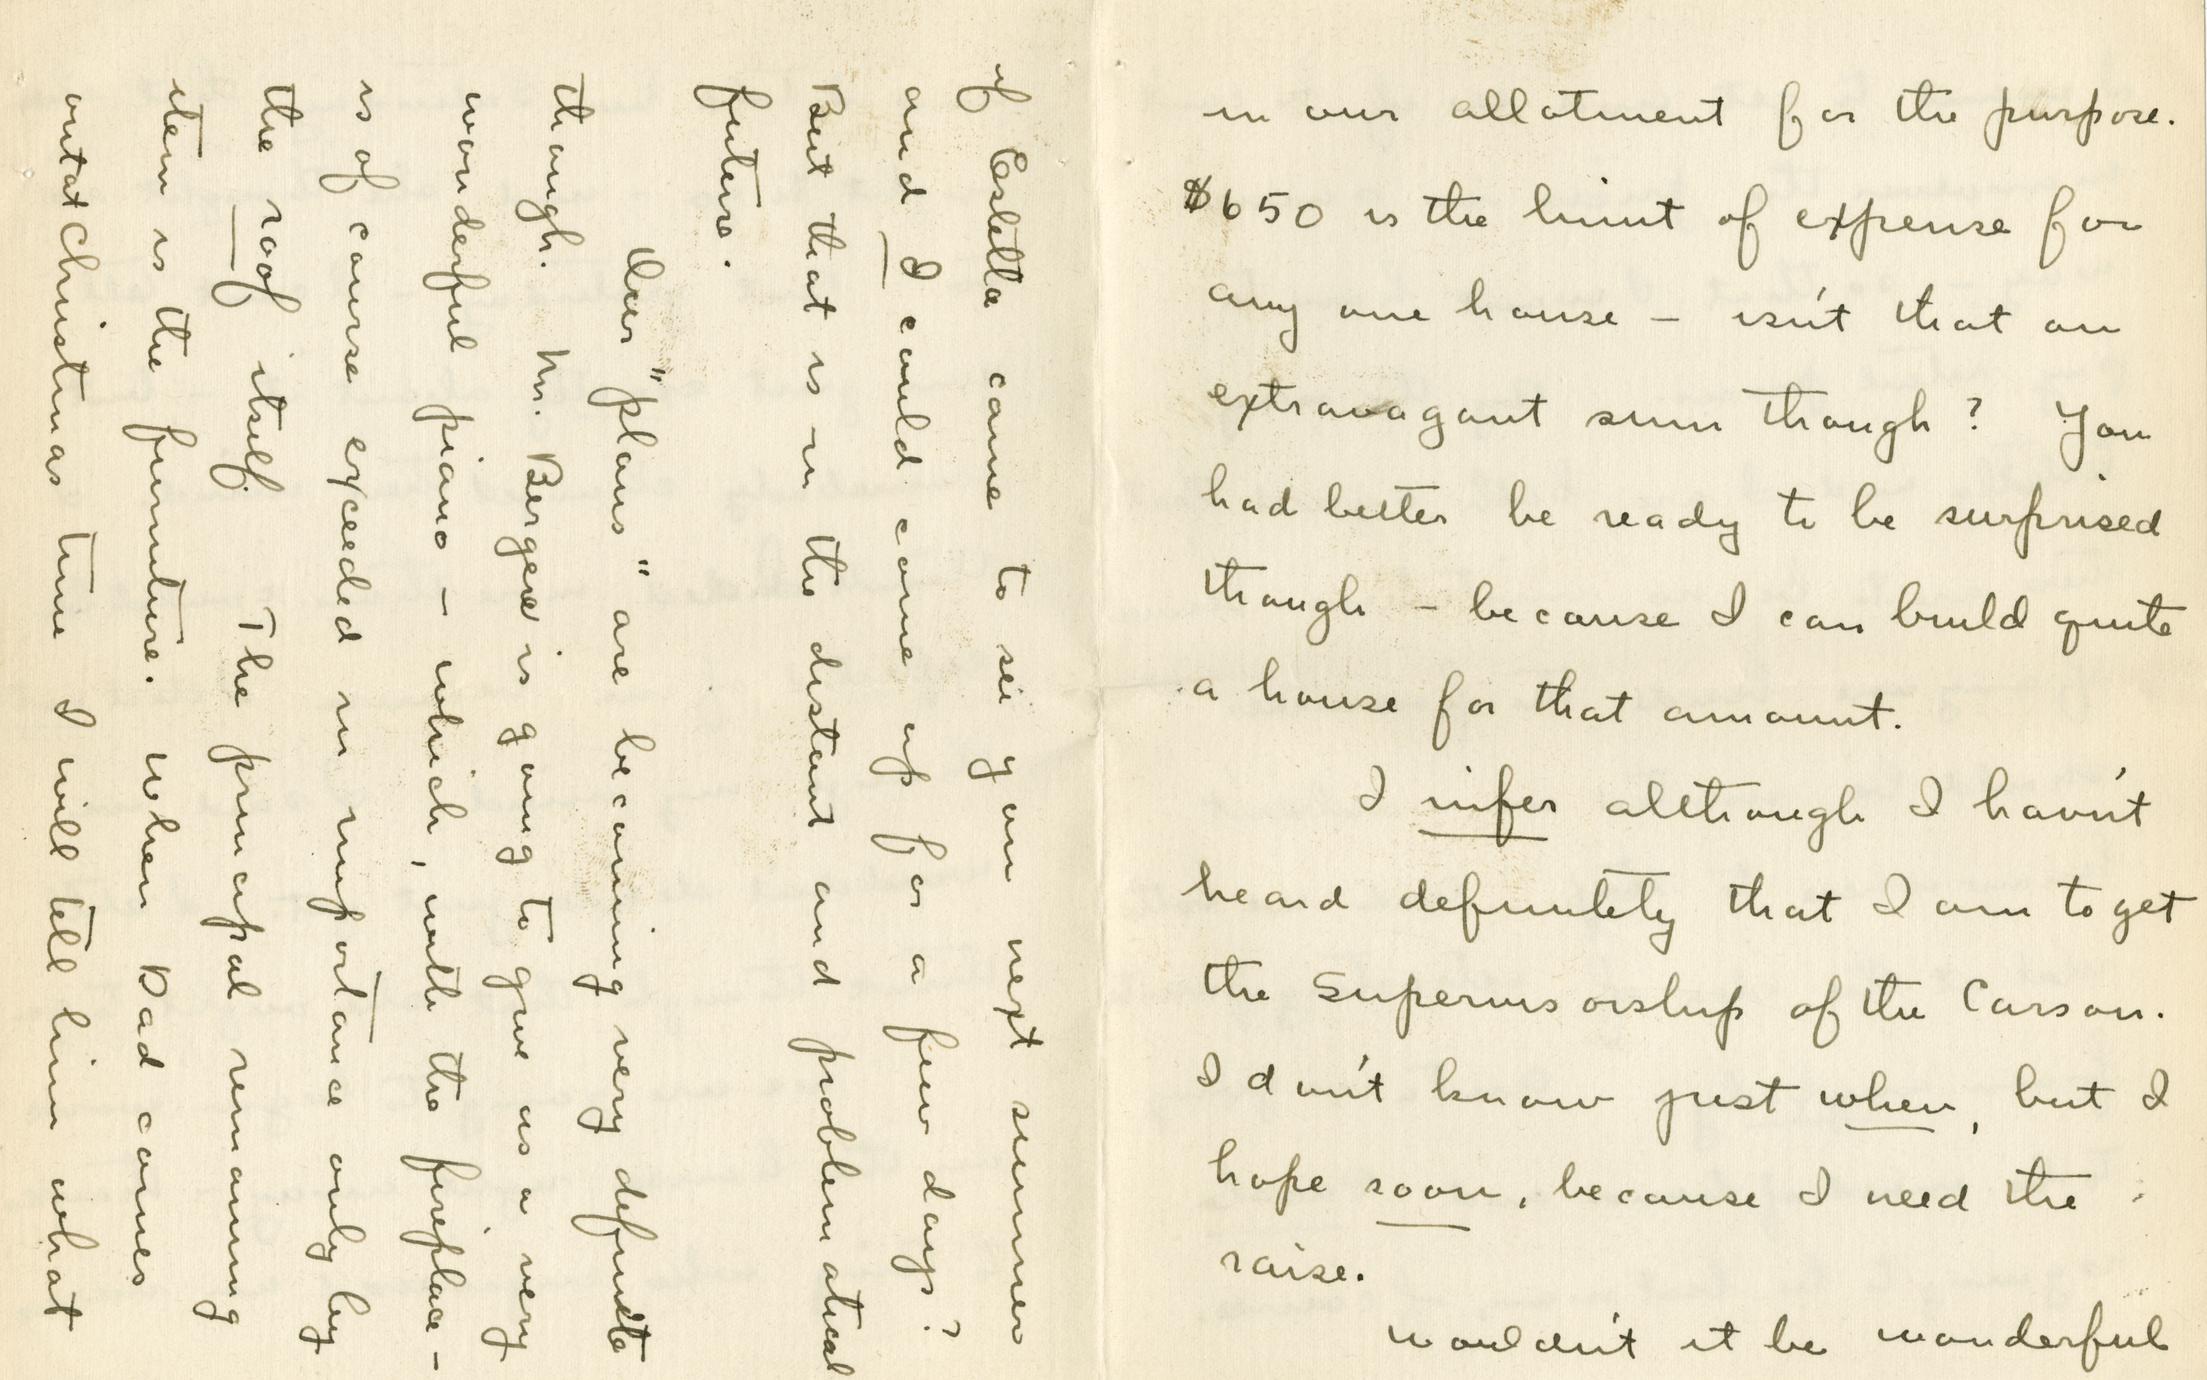 in our allotment for the purpose.
$650 is the limit of expense for
any one house – isn't that an
extravagant sum though? You
had better be ready to be surprised
though – because I can build quite
a house for that amount.
I infer although I hav'nt
heard definitely that I am to get
the Supervisorship of the Carson.
I don't know just when, but I
hope soon, because I need the
raise.
Wouldn't it be wonderful
if Estella came to see you next summer
and I could come up for a few days?
But that is in the distant and problematical
future.
Our "plans" are becoming very definite
though. Mr. Bergere is going to give us a very
wonderful piano – which, with the fireplace –
is of course exceeded in importance only by
the roof itself. The principal remaining
item is the furniture. When Dad comes
out at Christmas time I will tell him what